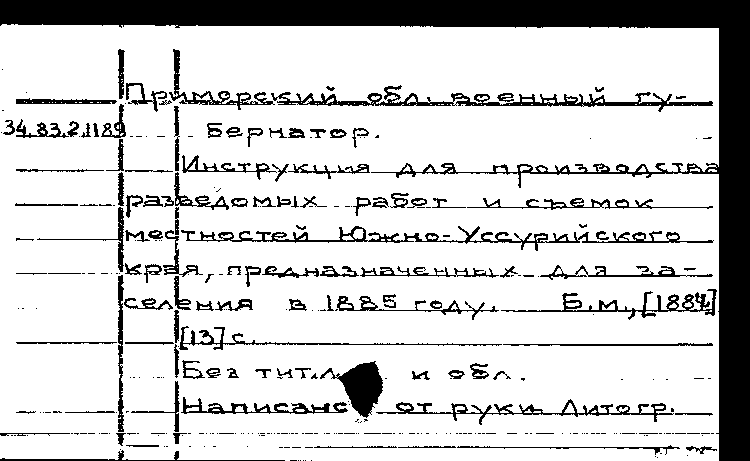 Приморский обл. военный гу-
34.83.2.1189 бернатор.
Инструкция для производства
разведомых работ и съемок
местностей Южно-Уссурийского
края, предназначенных для за-
селения в 1885 году. Б.м., [1884]
[13] с.
Без тит.л. и обл.
Написано от руки. Литогр.